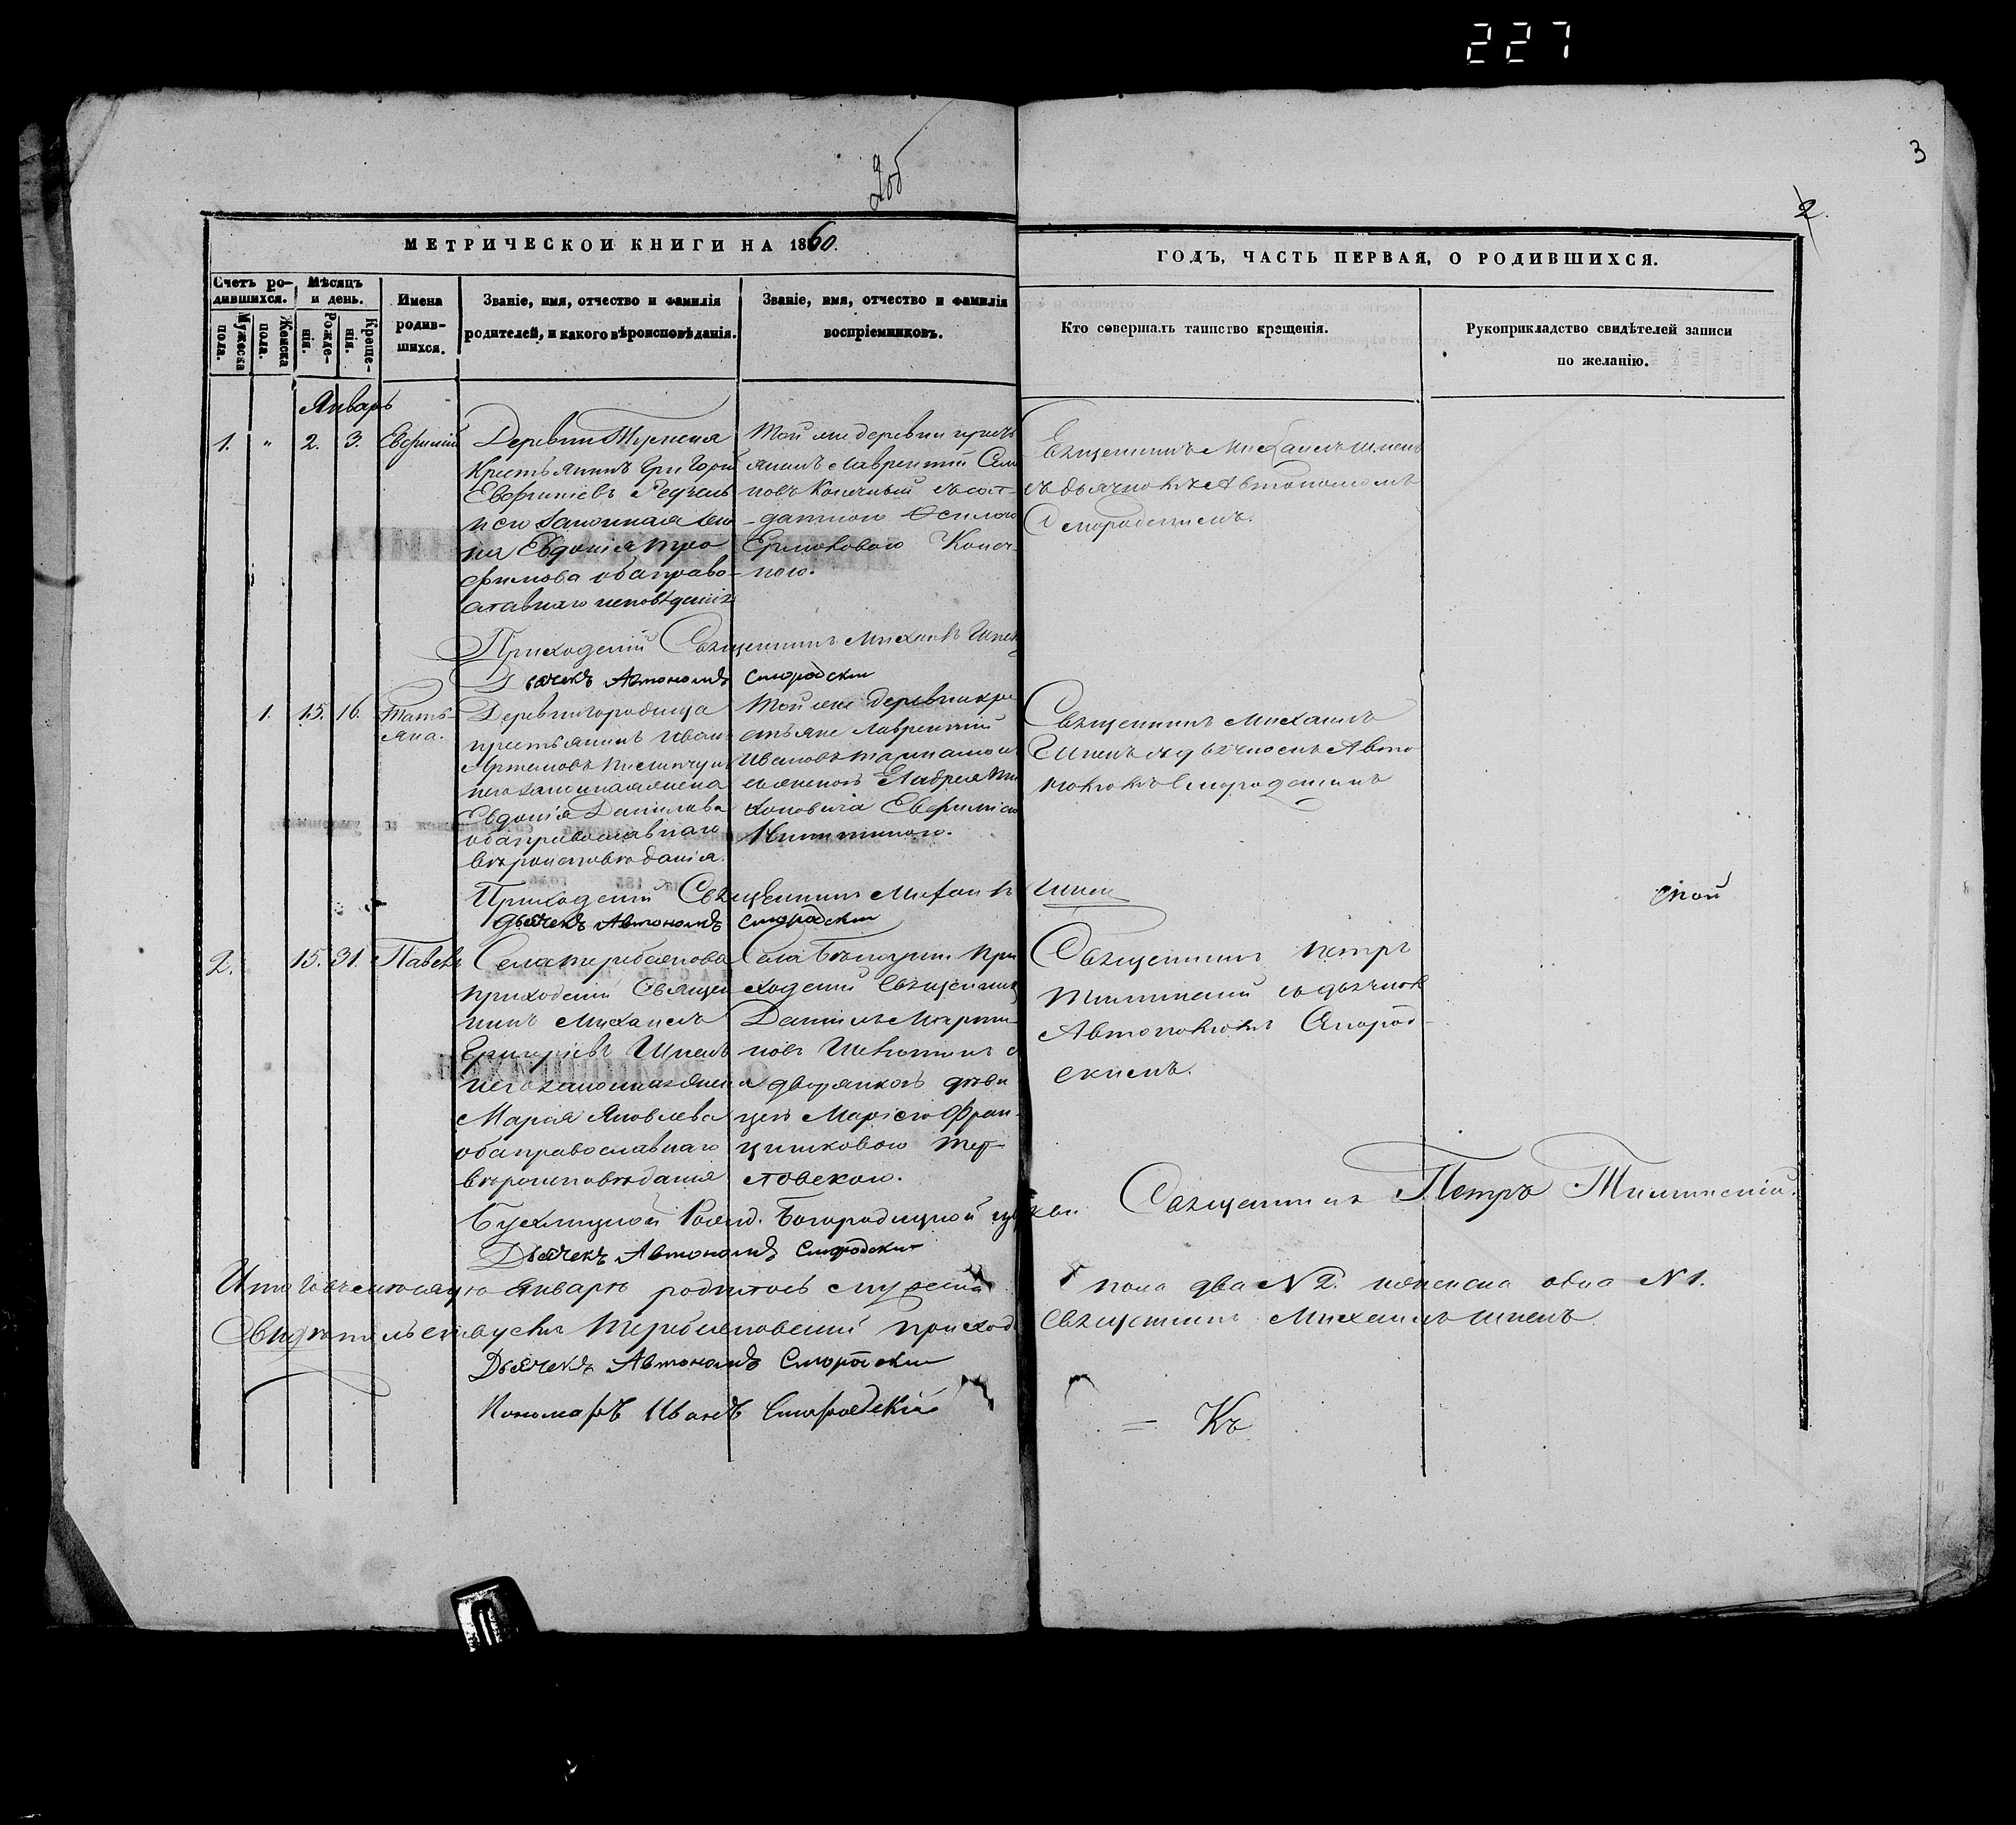 227
3
2об
2.
МЕТРИЧЕСКОЙ КНИГИ НА 1860.
ГОДЪ, ЧАСТЬ ПЕРВАЯ, О РОДИВШИХСЯ.
Счетъ ро-
дившихся.
Мужеска
пола.
Женска
пола.
Мѣсяцъ
и день.
Рожде-
нія.
Креще-
нія.
Имена
родив-
шихся.
Званіе, имя, отчество и фамилія
родителей, и какого вѣроисповѣданія.
Званіе, имя, отчество и фамилія
воспріемниковъ.
Кто совершалъ таинство крещенія.
Рукоприкладство свидѣтелей записи
по желанію.
Январь
1. " 2. 3. Евфимій
Деревни
Крестьянинъ Григорій
Евфиміевъ
и его законная же
на Евдокія Тро
фимова оба право
славнаго исповѣданія
Той же деревни кресть
янинъ Лаврентій
съ сол-
даткою
Ермоковою
ною.
Священникъ Михаилъ Шпекъ
съ дьячкомъ Автономомъ
Смородскимъ.
Приходскій Священникъ Михаилъ Шпекъ
Дьячекъ Автономъ Смородскій
1. 15. 16. Тать-
яна.
Деревни Городища
крестьянинъ Иванъ
Артемовъ
его законная жена
Евдокія Данилова
оба православнаго
вѣроисповѣданія.
Той же деревни кре
стьяне Лаврентій
Ивановъ
Евфимією
Священникъ Михаилъ
Шпекъ съ дьячкомъ Авто
номомъ Смородскимъ
Приходскій Священникъ Михаилъ Шпекъ
ской
Дьячекъ Автономъ Смородскій
2. 15. 31. Павелъ
Села Теребежова
приходскій Священ
никъ Михаилъ
Григоріевъ Шпекъ
и его законная жена
Марія Яковлева
оба православнаго
вѣроисповѣданія
Села при
ходскій Священникъ
Даніилъ Марти
новъ с
дворянкою дѣви
цею Марією Фран
цишковою
товскою.
Священникъ Петръ
съ дьячкомъ
Автономомъ Смород-
скимъ.
Рожд. Богородицкой церкви Священникъ Петръ
Дьячекъ Автономъ Смородскій
Итого въ мѣсяцѣ Январѣ родилось мужеска пола два N 2. женска одна N 1.
Свидѣтельствуемъ Теребежовскій Приход. Священникъ Михаилъ Шпекъ
Дьячекъ Автономъ Смородскій
Пономарь Иванъ Смородскій
= Къ